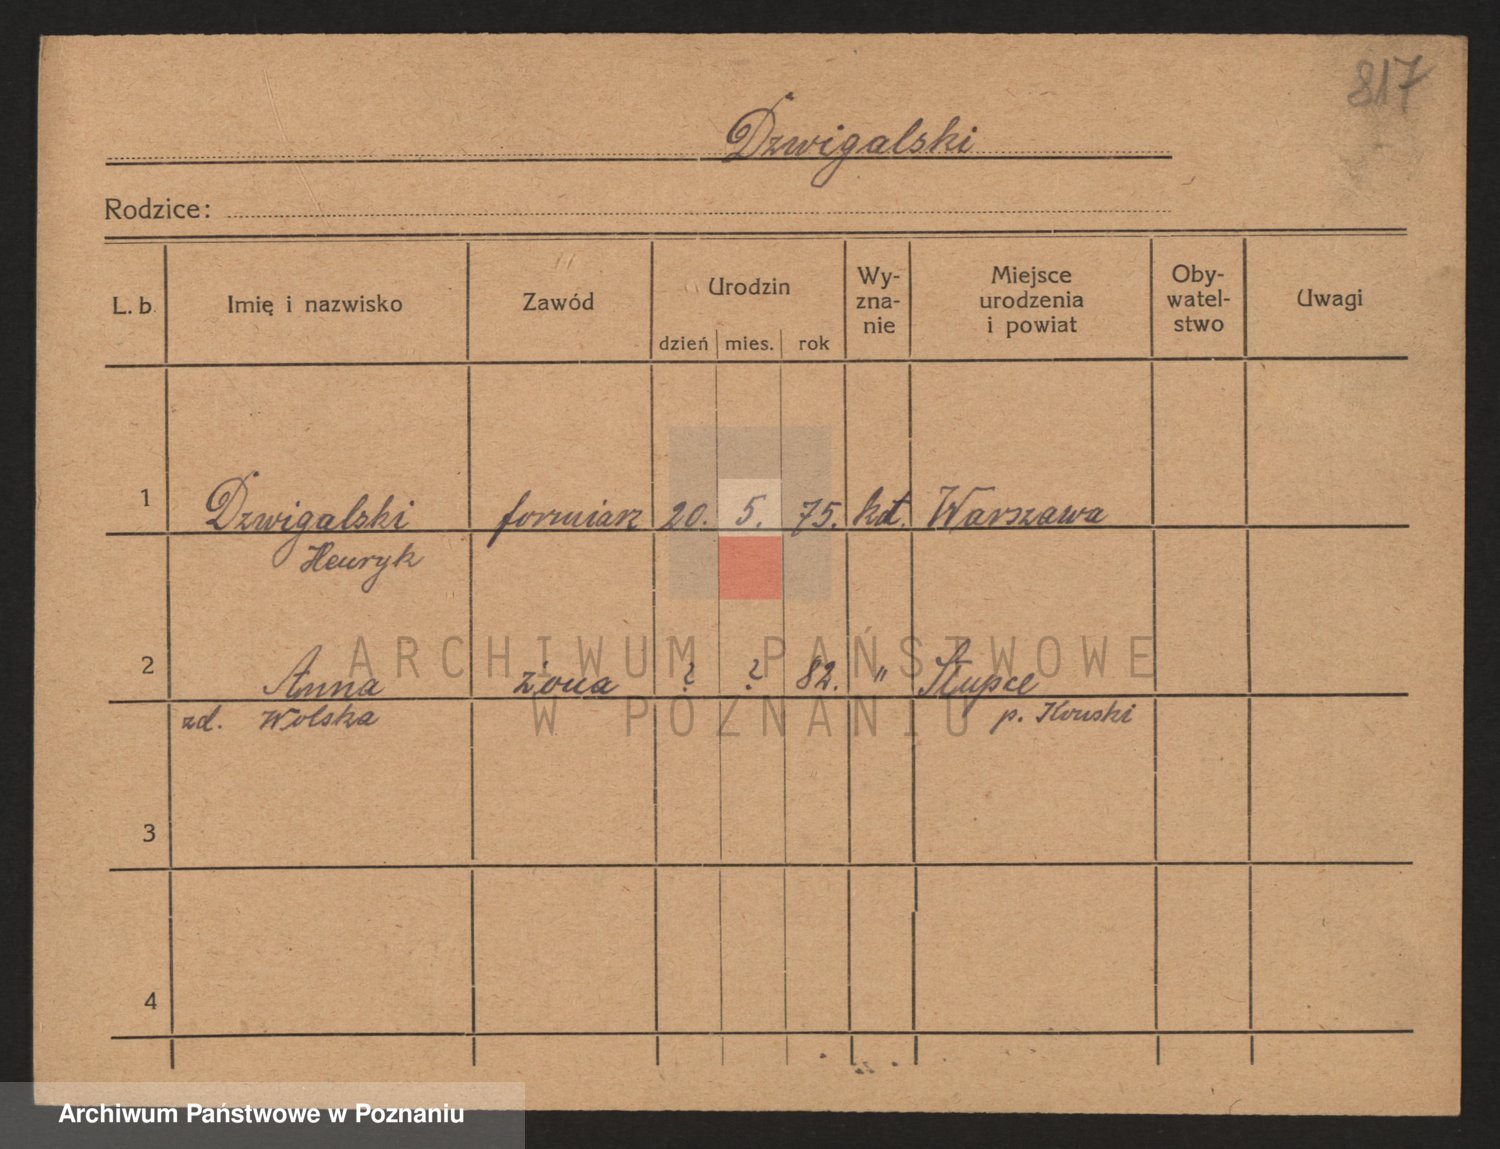 817
Dzwigalski
Rodzice:
L. b. Imię i nazwisko Zawód Urodzin dzień mies. rok Wy-zna-nie Miejsce urodzenia i powiat Oby-watel-stwo Uwagi
1 Dzwigalski formiarz 20. 5. 75. kat. Warszawa
Henryk
2 Anna żona ? ? 82. " Słupce
zd. Wolska p. Konski
3
4
ARCHIWUM PAŃSTWOWE
W POZNANIU
Archiwum Państwowe w Poznaniu